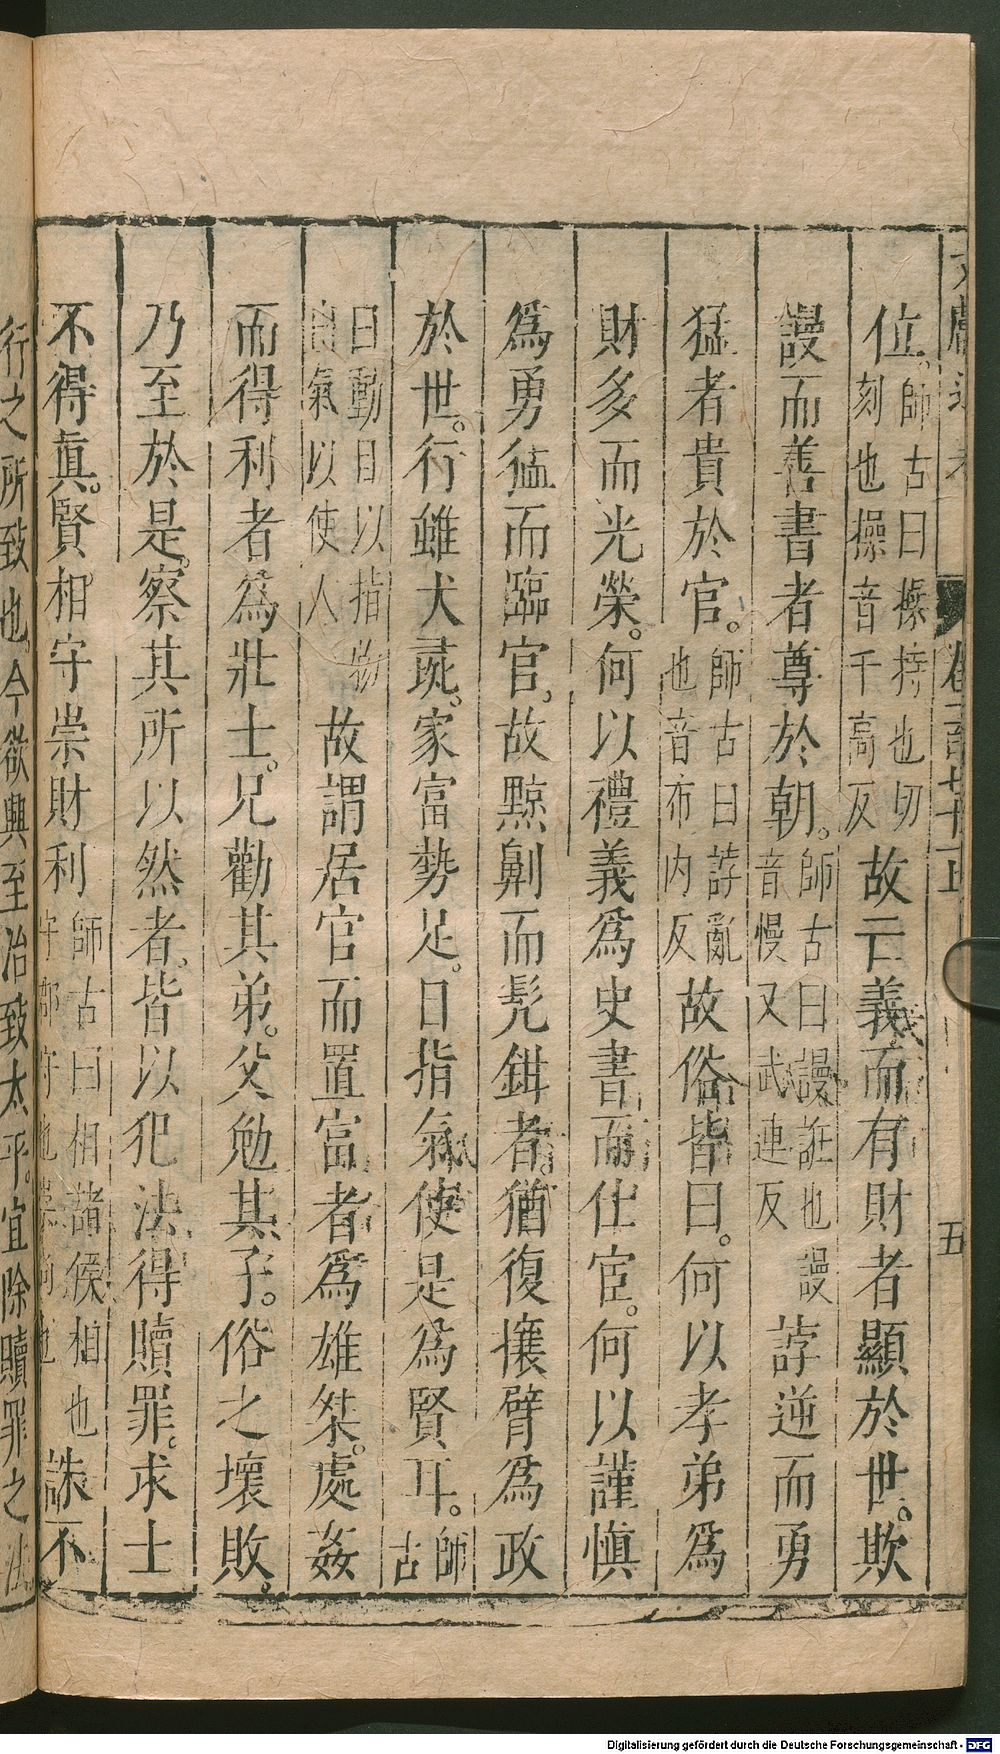 位。師古曰操持也切
刻也操音千高反故亡義而有財者顯於世。欺
謾而善書者尊於朝。師古曰謾誑也謾
音慢又武連反誖逆而勇
猛者貴於官。師古曰誖亂
也音布内反故俗皆曰。何以孝弟爲
財多而光榮。何以禮義爲史書而仕宦。何以謹慎
爲勇猛而臨官。故黥劓而髡鉗者。猶復攘臂爲政
於世。行雖犬彘。家富勢足。目指氣使是爲賢耳。師
古
曰動目以指物
氣以使人故謂居官而置富者爲雄桀。處姦
而得利者爲壯士。兄勸其弟。父勉其子。俗之壞敗。
乃至於是。察其所以然者。皆以犯法得贖罪。求士
不得眞。賢相守崇財利師古曰相諸侯相也
守郡守也崇尚也誅不
行之所致也。今欲興至治致太平。宜除贖罪之法
五
Digitalisierung gefördert durch die Deutsche Forschungsgemeinschaft - DFG